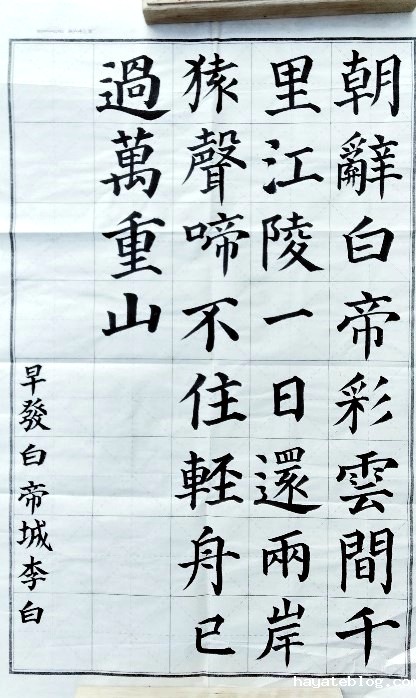 朝辭白帝彩雲間千
里江陵一日還兩岸
猿聲啼不住軽舟已
過萬重山
早發白帝城李白
hayateblog.co